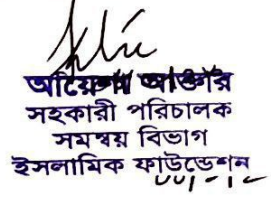 আয়েশা আক্তার
সহকারী পরিচালক
সমন্বয় বিভাগ
ইসলামিক ফাউন্ডেশন